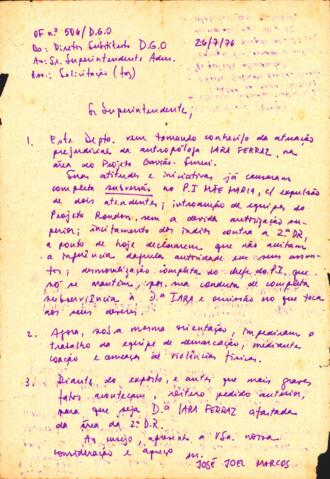 OF nº 506/D.G.O
Do: Diretor Substituto D.G.O 26/7/76
Ao: Sr. Superintendente Adm.
Ass.: Solicitação (faz)
Sr Superintendente,
1. Este Depto. vem tomando conhec/o da atuação
prejudicial da antropóloga IARA FERRAZ, na
área do Projeto Gavião-Suruí.
Suas atitudes e iniciativas já causaram
completa subversão no P.I MÃE MARIA, c/ expulsão
de dois atendentes; introdução de equipes do
Projeto Rondon, sem a devida autorização su-
perior; incitamento dos índios contra a 2ª DR,
a ponto de hoje declararem que não aceitam
a ingerência daquela autoridade em seus assun-
tos; desmoralização completa do chefe do P.I. que
só se mantem, por sua conduta de completa
subserviência à D.ª IARA e omissão no que toca
aos seus deveres.
2. Agora, sob a mesma orientação, impediram o
trabalho da equipe de demarcação, mediante
coação e ameaça de violências físicas.
3. Diante do exposto, e antes que mais graves
fatos aconteçam, reitero pedido anterior,
para que seja D.ª IARA FERRAZ afastada
da área da 2ª D.R.
Ao ensejo, apresento a VSa. nossa
consideração e apreço
JOSÉ JOEL MARCOS